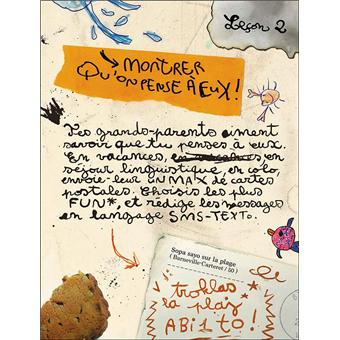 Leçon 2
MONTRER
QU'ON PENSE À EUX !
Les grands-parents aiment
savoir que tu penses à eux.
En vacances, en
séjour linguistique, en colo,
envoie-leur UN MAX de cartes
postales. Choisis les plus
FUN*, et rédige les messages
en langage SMS-TEXTO.
Sopa sayo sur la plage
( Barneville-Carteret / 50 )
troklas
la play
ABI1TO !